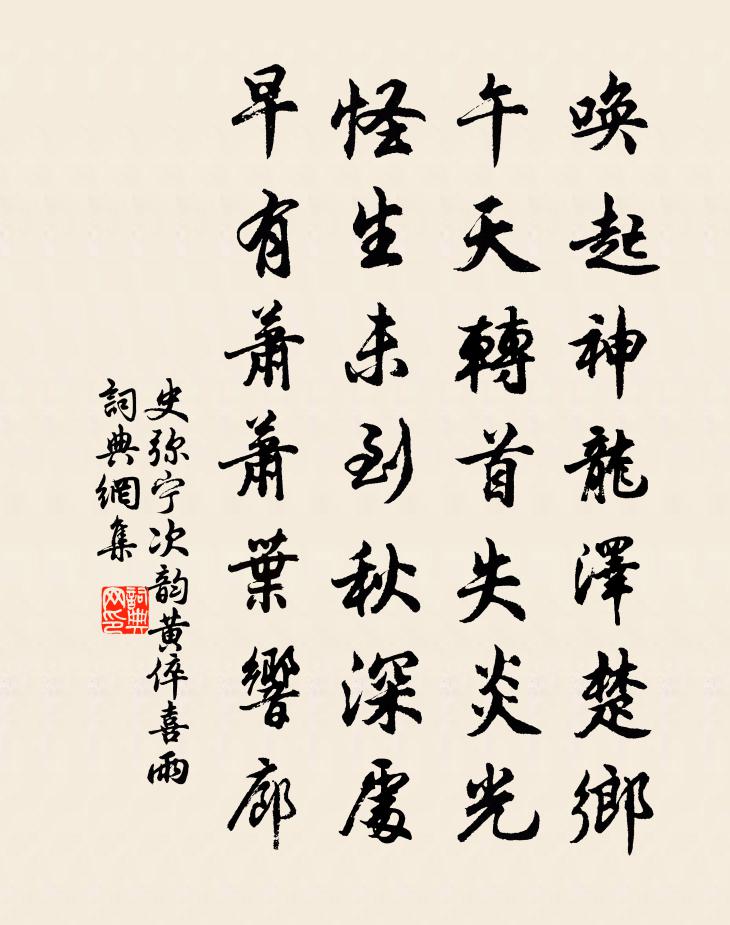 唤起神龍澤楚鄉
午天轉首失炎光
怪生未到秋深處
早有蕭蕭葉響廊
史弥宁次韵黄倅喜雨
詞典網集
詞典网印